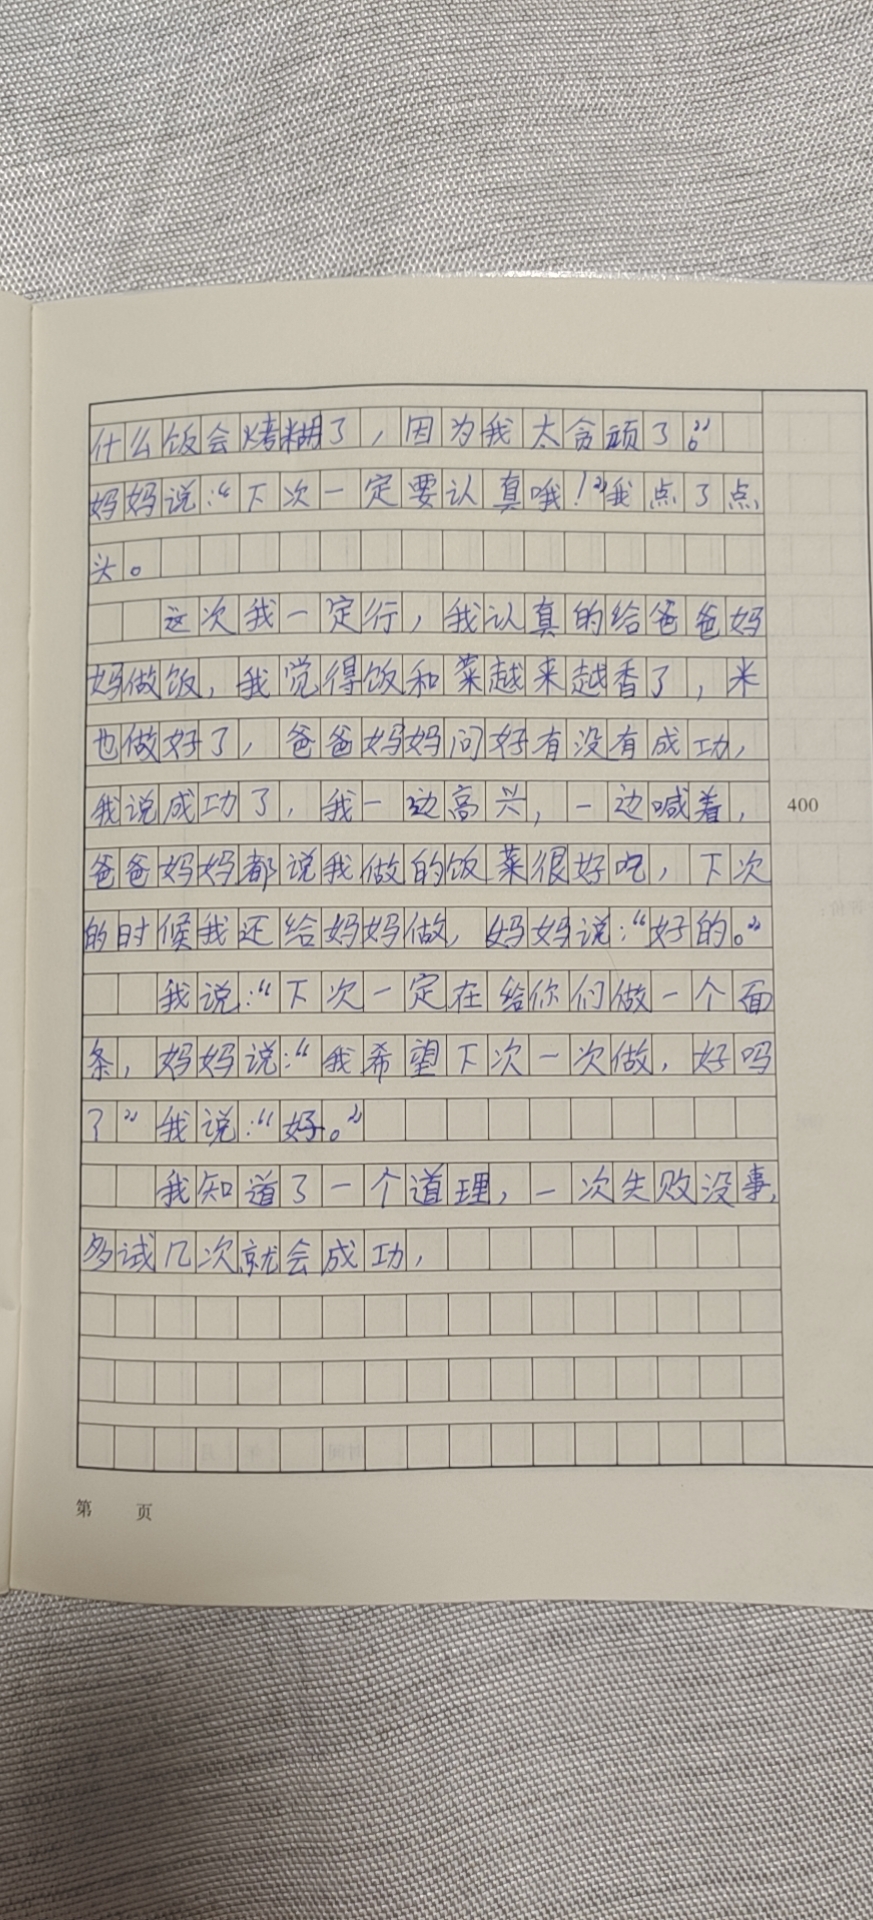 什么饭会烤糊了，因为我太贪顽了。”
妈妈说：“下次一定要认真哦！”我点了点
头。
这次我一定行，我认真的给爸爸妈
妈做饭，我觉得饭和菜越来越香了，米
也做好了，爸爸妈妈问好有没有成功，
我说成功了，我一边高兴，一边喊着，
400
爸爸妈妈都说我做的饭菜很好吃，下次
的时候我还给妈妈做，妈妈说：“好的。”
我说：“下次一定在给你们做一个面
条，妈妈说：“我希望下次一次做，好吗
？”我说：“好。”
我知道了一个道理，一次失败没事，
多试几次就会成功，
第 页